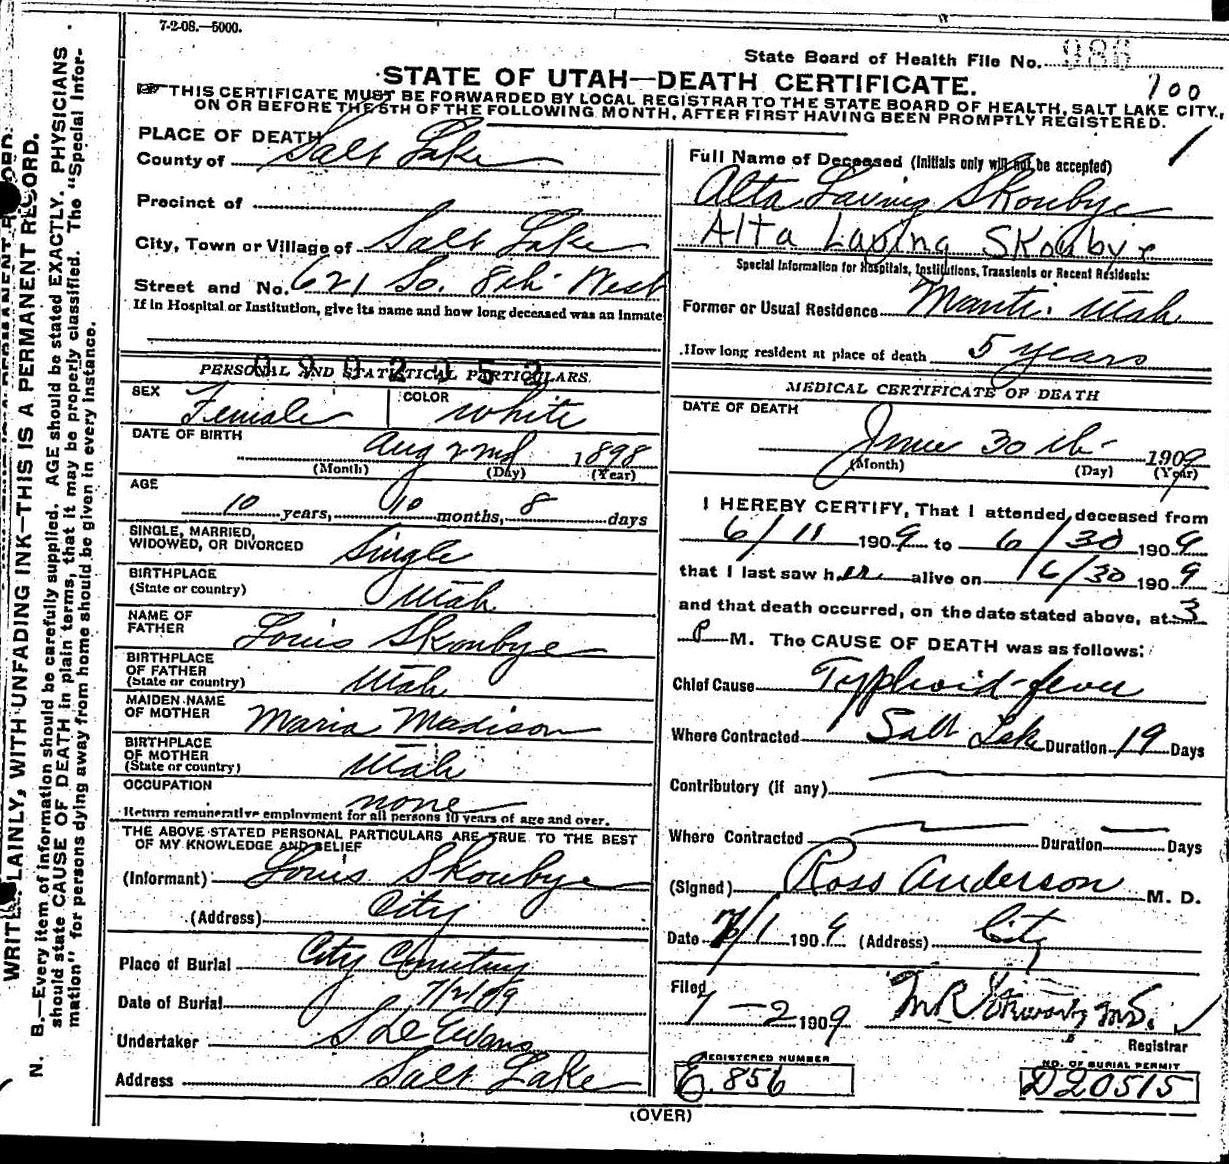 7-2-08.—5000.
State Board of Health File No. 986
STATE OF UTAH—DEATH CERTIFICATE.
700
THIS CERTIFICATE MUST BE FORWARDED BY LOCAL REGISTRAR TO THE STATE BOARD OF HEALTH, SALT LAKE CITY,
ON OR BEFORE THE 5TH OF THE FOLLOWING MONTH, AFTER FIRST HAVING BEEN PROMPTLY REGISTERED.
WRITE PLAINLY, WITH UNFADING INK—THIS IS A PERMANENT RECORD.
N. B.—Every item of information should be carefully supplied. AGE should be stated EXACTLY. PHYSICIANS
should state CAUSE OF DEATH in plain terms, that it may be properly classified. The "Special Infor-
mation" for persons dying away from home should be given in every instance.
PLACE OF DEATH
County of Salt Lake
Precinct of
City, Town or Village of Salt Lake
Street and No. 621 So. 8th West
If in Hospital or Institution, give its name and how long deceased was an Inmate
PERSONAL AND STATISTICAL PARTICULARS.
SEX Female COLOR White
DATE OF BIRTH Aug 2nd 1898
(Month) (Day) (Year)
AGE
10 years, 10 months, 8 days
SINGLE, MARRIED,
WIDOWED, OR DIVORCED Single
BIRTHPLACE
(State or country) Utah
NAME OF
FATHER Louis Skoubye
BIRTHPLACE
OF FATHER
(State or country) Utah
MAIDEN NAME
OF MOTHER Maria Madison
BIRTHPLACE
OF MOTHER
(State or country) Utah
OCCUPATION
none
Return remunerative employment for all persons 10 years of age and over.
THE ABOVE STATED PERSONAL PARTICULARS ARE TRUE TO THE BEST
OF MY KNOWLEDGE AND BELIEF
(Informant) Louis Skoubye
(Address) City
Place of Burial City Cemetery
Date of Burial 7/2/09
Undertaker S D Evans
Address Salt Lake
Full Name of Deceased (Initials only will not be accepted)
Alta Laving Skoubye
Alta Laving Skoubye
Special Information for Hospitals, Institutions, Transients or Recent Residents:
Former or Usual Residence Manti. Utah
How long resident at place of death 5 years
MEDICAL CERTIFICATE OF DEATH
DATE OF DEATH
June 30th 1909
(Month) (Day) (Year)
I HEREBY CERTIFY, That I attended deceased from
6/11 1909 to 6/30 1909
that I last saw her alive on 6/30 1909
and that death occurred, on the date stated above, at 3
P M. The CAUSE OF DEATH was as follows:
Chief Cause Typhoid-fever
Where Contracted Salt Lake Duration 19 Days
Contributory (if any)
Where Contracted Duration Days
(Signed) Ross Anderson M. D.
Date 7/1 1909 (Address) City
Filed
7-2 1909
Registrar
REGISTERED NUMBER
E 856
NO. OF BURIAL PERMIT
D20515
(OVER)